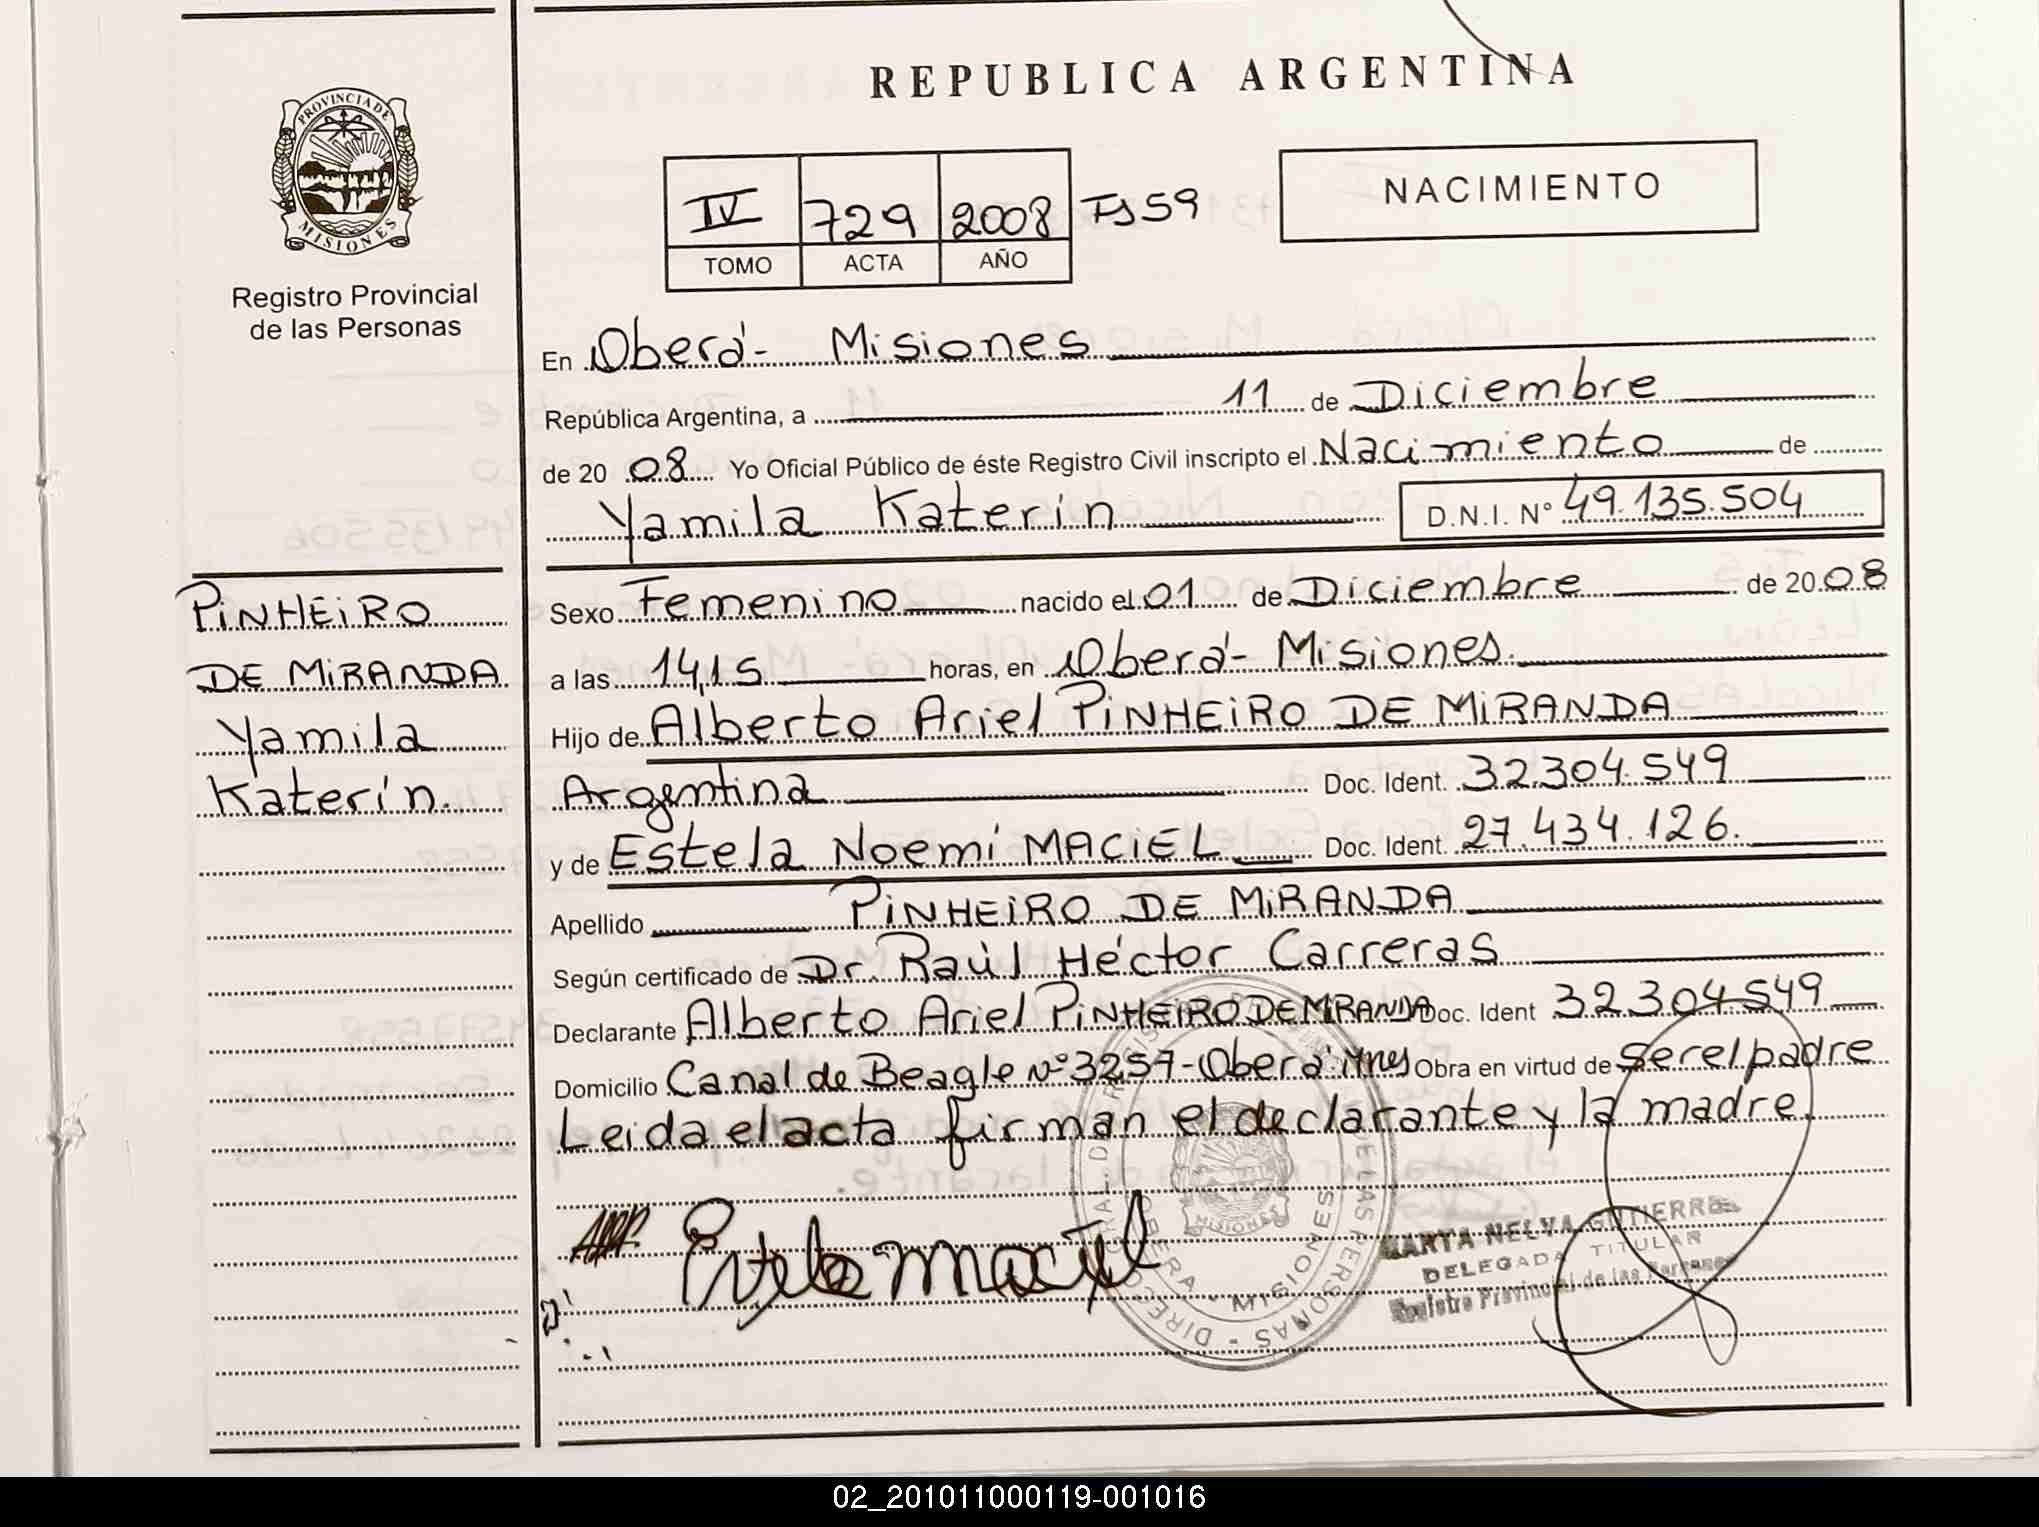 REPUBLICA ARGENTINA
PROVINCIA DE
MISIONES
Registro Provincial
de las Personas
IV 729 2008 Fs 59
TOMO ACTA AÑO
NACIMIENTO
En Oberá - Misiones
República Argentina, a 11 de Diciembre
de 20 08 Yo Oficial Público de éste Registro Civil inscripto el Nacimiento de
Yamila Katerin D.N.I. Nº 49.135.504
PiNHEiRO
DE MiRANDA
Yamila
Katerín.
Sexo Femenino nacido el 01 de Diciembre de 20 08
a las 14,15 horas, en Oberá - Misiones.
Hijo de Alberto Ariel PiNHEiRO DE MiRANDA
Argentina Doc. Ident. 32.304.549
y de Estela Noemí MACiEL Doc. Ident. 27.434.126.
Apellido PiNHEiRO DE MiRANDA
Según certificado de Dr. Raúl Héctor Carreras
Declarante Alberto Ariel PiNHEiRO DE MiRANDA Doc. Ident 32.304.549
Domicilio Canal de Beagle Nº 3257 - Oberá Mnes Obra en virtud de ser el padre
Leida el acta firman el declarante y la madre.
Estela Maciel
OBERA - MISIONES
MISIONES
MARTA NELVA GUTIERREZ
DELEGADA TITULAR
Registro Provincial de las Personas
02_201011000119-001016